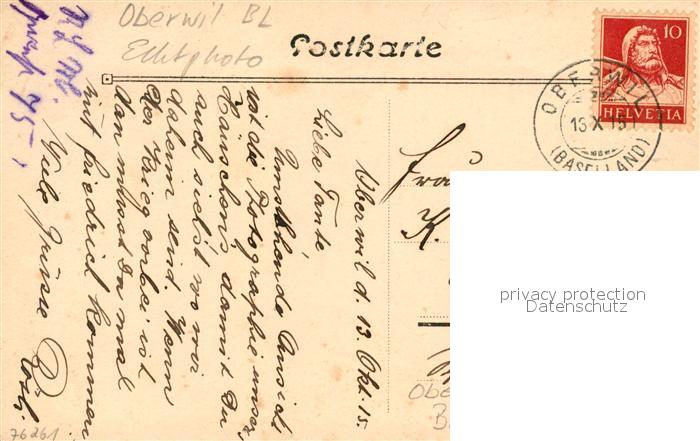 Oberwil BL
Echtphoto
Postkarte
10
HELVETIA
OBERWIL
13 X 15
(BASELLAND)
Oberwil d. 13. Okt. 15.
Liebe Tante,
Umstehende Ansicht
ist die Fotographie unser
Häuschens damit Du
auch siehst wo wir
daheim seind. Wenn
der Krieg vorbei ist
dan musst Du mal
mit Friedrich kommen
Viele Grüsse Rösli
Frau
K.
privacy protection
Datenschutz
Obe
B.
76261